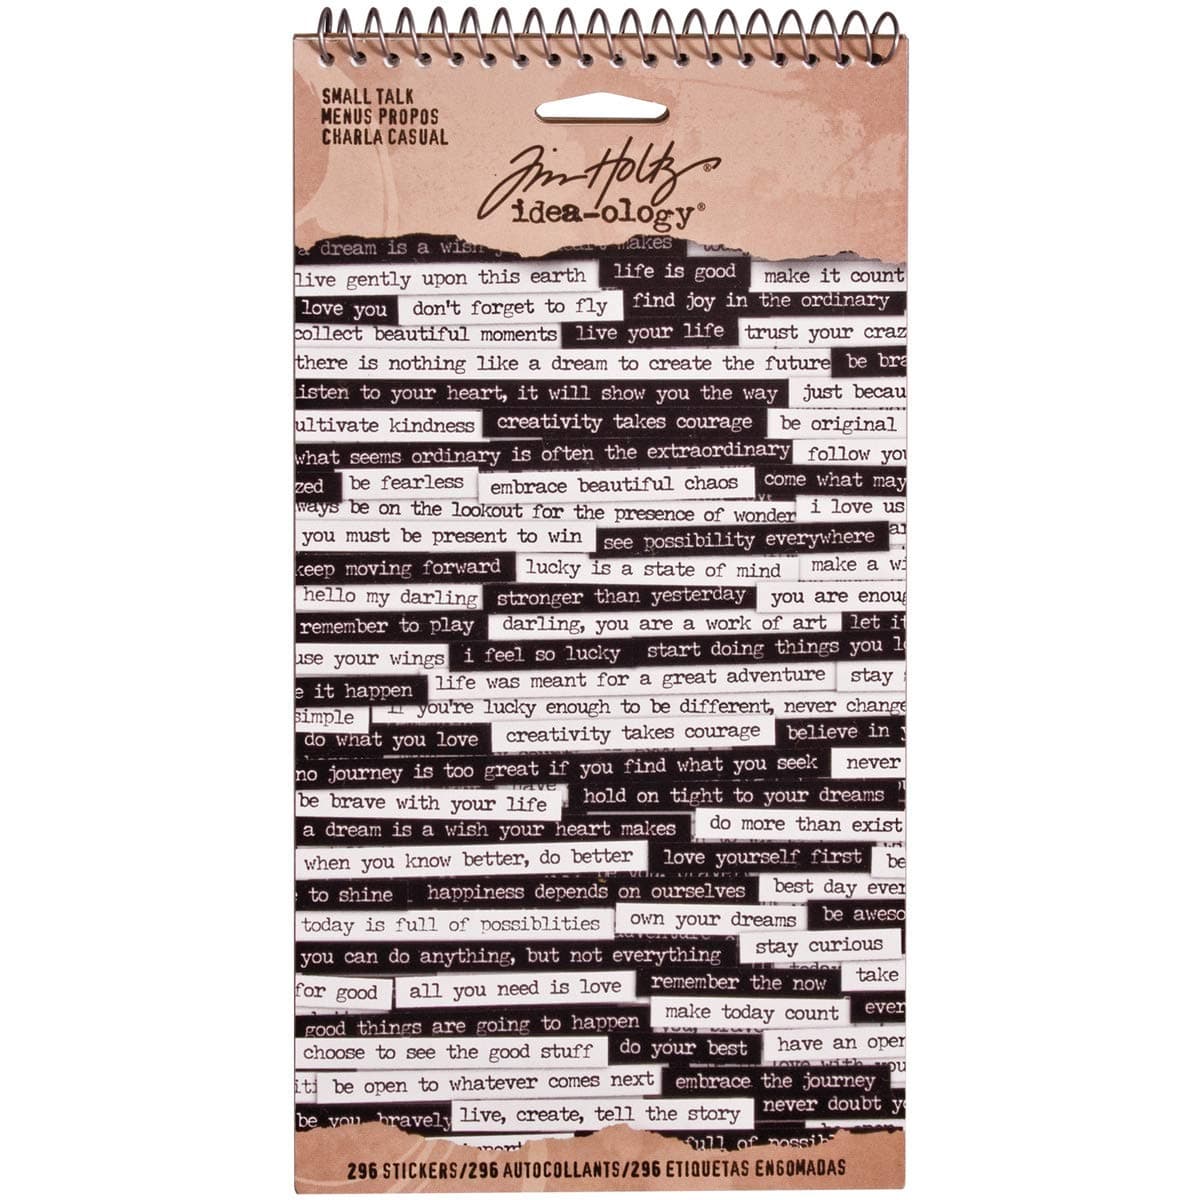 SMALL TALK
MENUS PROPOS
CHARLA CASUAL
Tim Holtz®
idea-ology®
a dream is a wish makes
live gently upon this earth life is good make it count
love you don't forget to fly find joy in the ordinary
collect beautiful moments live your life trust your craz
there is nothing like a dream to create the future be bra
isten to your heart, it will show you the way just becau
ultivate kindness creativity takes courage be original
what seems ordinary is often the extraordinary follow you
zed be fearless embrace beautiful chaos come what may
ways be on the lookout for the presence of wonder i love us
you must be present to win see possibility everywhere
keep moving forward lucky is a state of mind make a wi
hello my darling stronger than yesterday you are enoug
remember to play darling, you are a work of art let it
use your wings i feel so lucky start doing things you lo
e it happen life was meant for a great adventure stay
simple if you're lucky enough to be different, never change
do what you love creativity takes courage believe in y
no journey is too great if you find what you seek never
be brave with your life hold on tight to your dreams
a dream is a wish your heart makes do more than exist
when you know better, do better love yourself first be
to shine happiness depends on ourselves best day ever
today is full of possiblities own your dreams be aweso
you can do anything, but not everything stay curious
for good all you need is love remember the now take
good things are going to happen make today count ever
choose to see the good stuff do your best have an open
iti be open to whatever comes next embrace the journey
be you, bravely live, create, tell the story never doubt yo
full of possib
296 STICKERS/296 AUTOCOLLANTS/296 ETIQUETAS ENGOMADAS